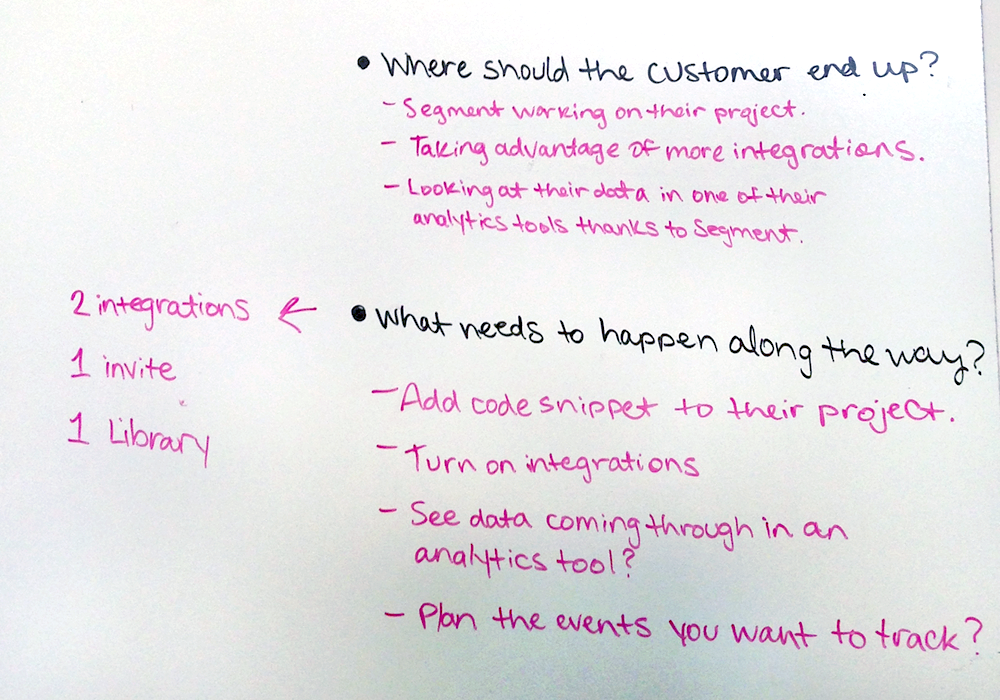 • Where should the customer end up?
- Segment working on their project.
- Taking advantage of more integrations.
- Looking at their data in one of their
analytics tools thanks to Segment.
2 integrations ←
1 invite
1 Library
• What needs to happen along the way?
- Add code snippet to their project.
- Turn on integrations
- See data coming through in an
analytics tool?
- Plan the events you want to track?